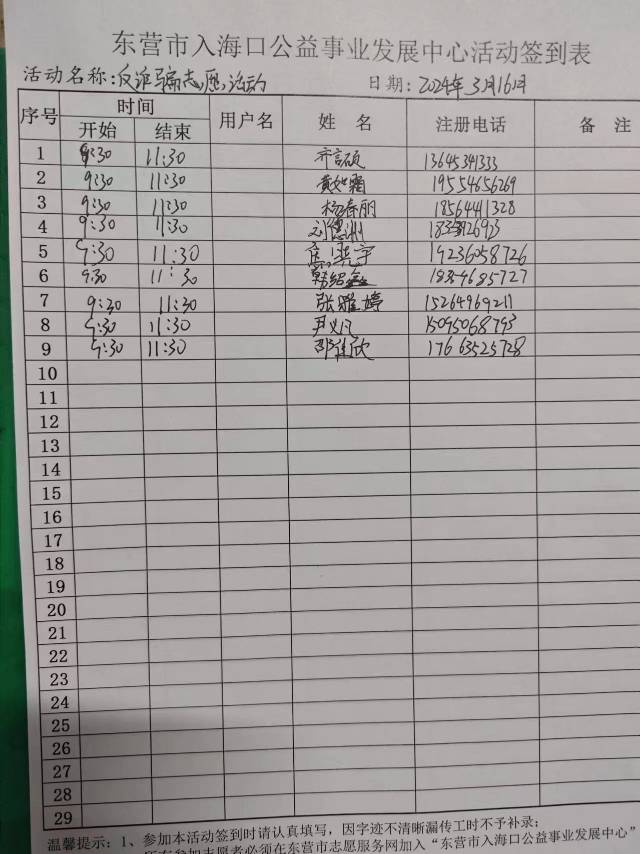 东营市入海口公益事业发展中心活动签到表
活动名称:反诈骗志愿活动 日期:2024年3月16日
序号 时间 用户名 姓 名 注册电话 备 注
开始 结束
1 9:30 11:30 齐言硕 13645341333
2 9:30 11:30 黄如霜 19554656269
3 9:30 11:30 杨春丽 18564441328
4 9:30 11:30 刘德洲
5 9:30 11:30 19236058726
6 9:30 11:30 韩绍鑫 18354685727
7 9:30 11:30 张雅婷 15264969211
8 9:30 11:30 尹义凡 15095068793
9 9:30 11:30 邵佳欣 17663525728
10
11
12
13
14
15
16
17
18
19
20
21
22
23
24
25
26
27
28
29
温馨提示:1、参加本活动签到时请认真填写,因字迹不清晰漏传工时不予补录;
所有参加志愿者必须在东营市志愿服务网加入“东营市入海口公益事业发展中心”